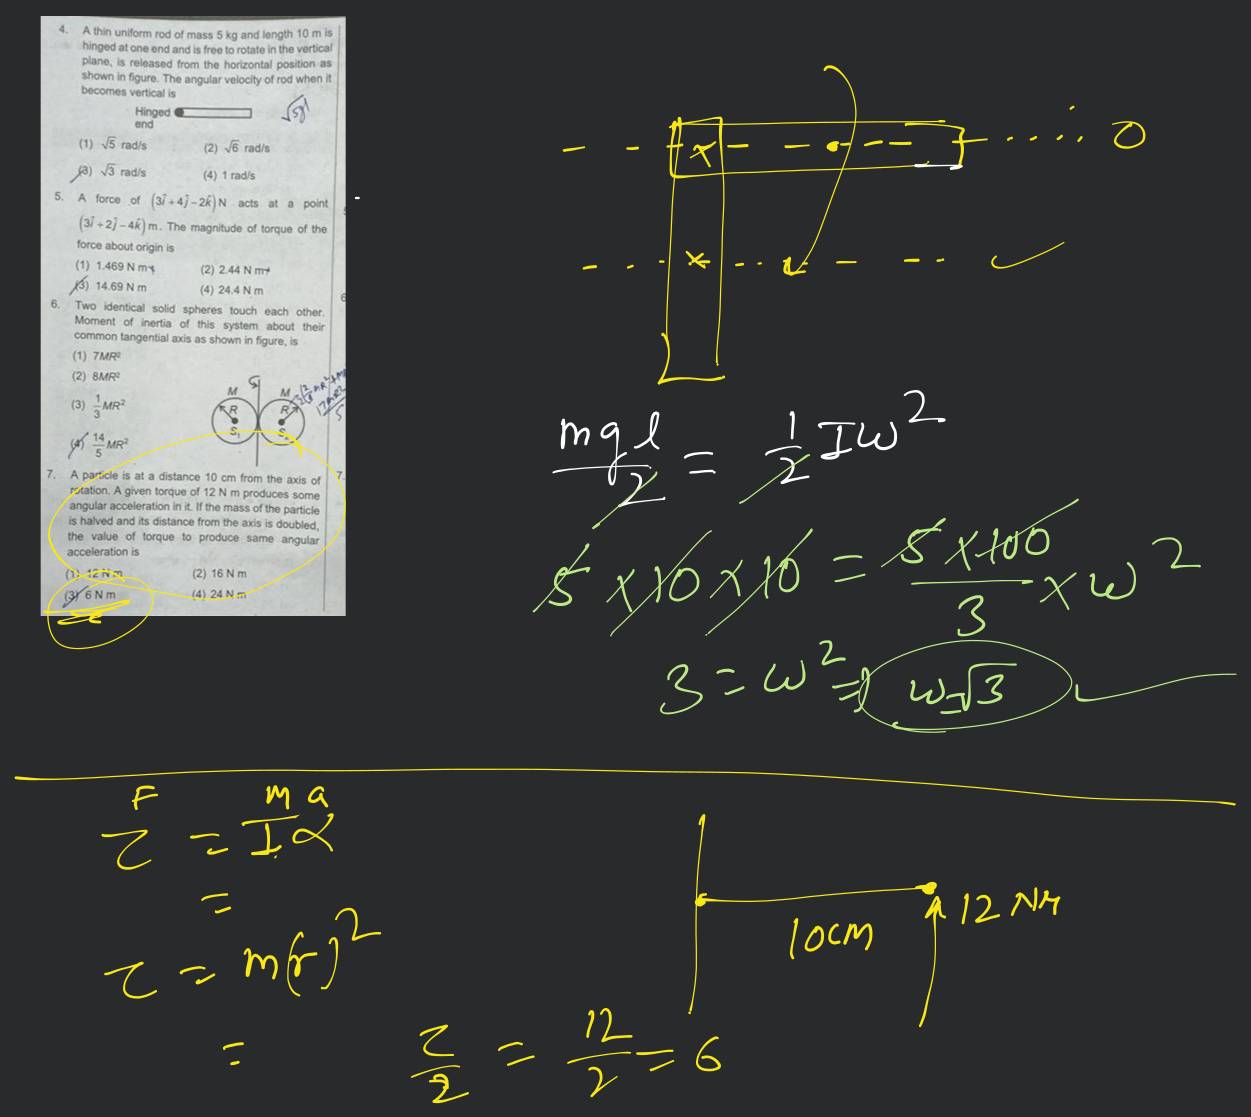 4. A thin uniform rod of mass 5 kg and length 10 m is
hinged at one end and is free to rotate in the vertical
plane, is released from the horizontal position as
shown in figure. The angular velocity of rod when it
becomes vertical is
Hinged
end
(1) √5 rad/s (2) √6 rad/s
(3) √3 rad/s (4) 1 rad/s
5. A force of (3î + 4ĵ – 2k̂) N acts at a point
(3î + 2ĵ – 4k̂) m. The magnitude of torque of the
force about origin is
(1) 1.469 N m (2) 2.44 N m
(3) 14.69 N m (4) 24.4 N m
6. Two identical solid spheres touch each other.
Moment of inertia of this system about their
common tangential axis as shown in figure, is
(1) 7MR²
(2) 8MR²
(3) 1/3 MR²
(4) 14/5 MR²
M M
R R
S₁
7. A particle is at a distance 10 cm from the axis of
rotation. A given torque of 12 N m produces some
angular acceleration in it. If the mass of the particle
is halved and its distance from the axis is doubled,
the value of torque to produce same angular
acceleration is
(1) 12 N m (2) 16 N m
(3) 6 N m (4) 24 N m
6
7.
0
mgl/2 = 1/2 Iω²
5 × 10 × 10 = 5 × 100/3 × ω²
3 = ω² = ω = √3
F m a
τ = Iα
=
τ = m(r)²
= τ/2 = 12/2 = 6
10cm
12 NM